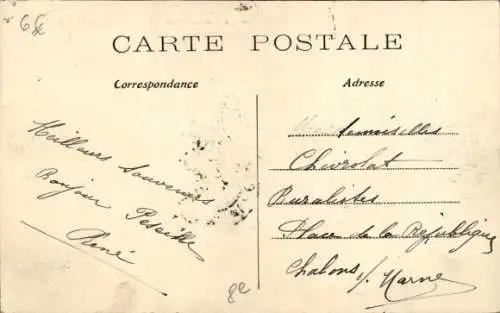 6
CARTE POSTALE
Correspondance
Adresse
Meilleurs Souvenirs
Bonjour
René
Mesdemoiselles
Chevrolat
Buralistes
Place de la République
Chalons s/. Marne
8e